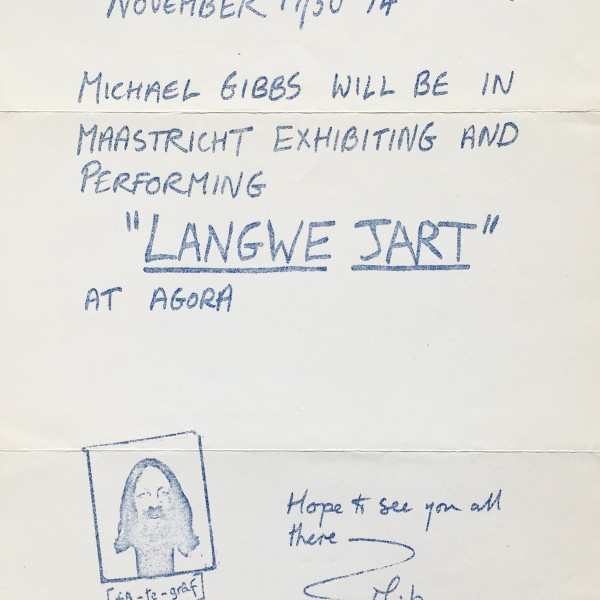 NOVEMBER 17/30 74
MICHAEL GIBBS WILL BE IN
MAASTRICHT EXHIBITING AND
PERFORMING
"LANGWE JART"
AT AGORA
Hope to see you all
there
[fə-tə-graf]